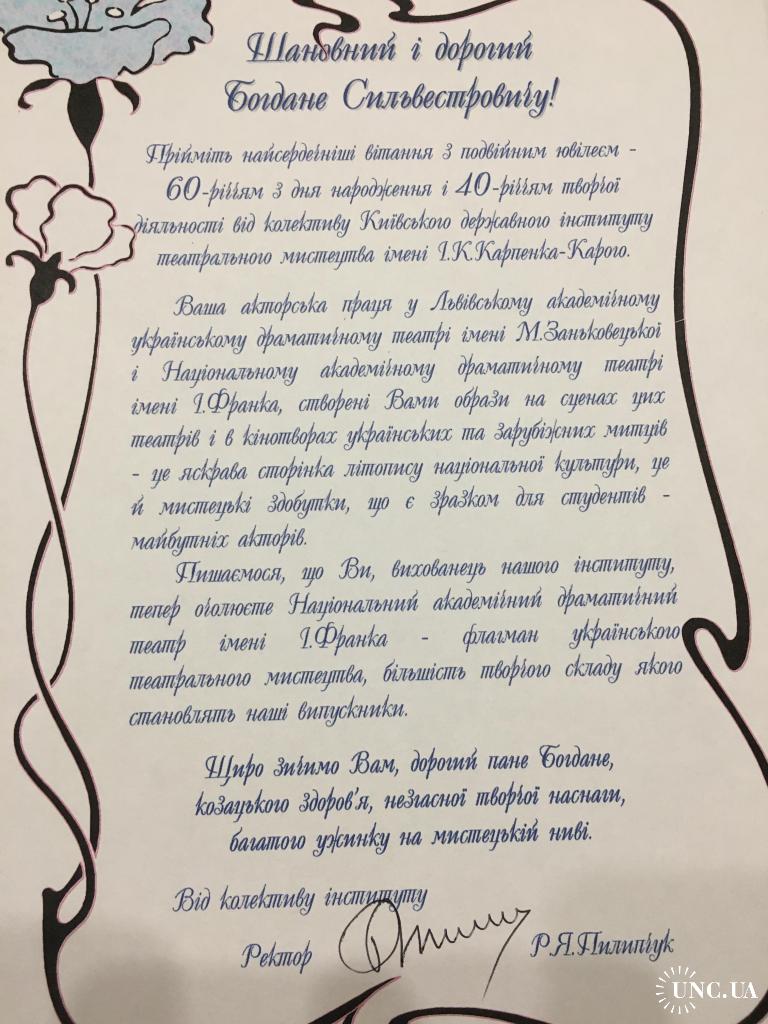 Шановний і дорогий
Богдане Сильвестровичу!
Прийміть найсердечніші вітання з подвійним ювілеєм -
60-річчям з дня народження і 40-річчям творчої
діяльності від колективу Київського державного інституту
театрального мистецтва імені І.К.Карпенка-Карого.
Ваша акторська праця у Львівському академічному
українському драматичному театрі імені М.Заньковецької
і Національному академічному драматичному театрі
імені І.Франка, створені Вами образи на сценах цих
театрів і в кінотворах українських та зарубіжних митців
- це яскрава сторінка літопису національної культури, це
й мистецькі здобутки, що є зразком для студентів -
майбутніх акторів.
Пишаємося, що Ви, вихованець нашого інституту,
тепер очолюєте Національний академічний драматичний
театр імені І.Франка - флагман українського
театрального мистецтва, більшість творчого складу якого
становлять наші випускники.
Щиро зичимо Вам, дорогий пане Богдане,
козацького здоров'я, незгасної творчої наснаги,
багатого ужинку на мистецькій ниві.
Від колективу інституту
Ректор Р.Я.Пилипчук
UNC.UA